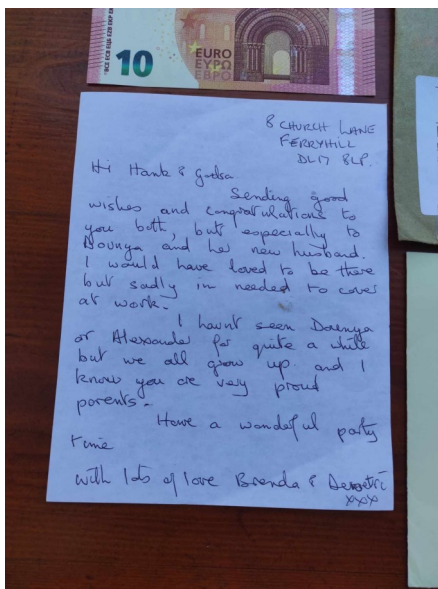 10
EURO
ΕΥΡΩ
ЕВРО
8 CHURCH LANE
FERRYHILL
DL17 8LP.
Hi Hank &
Sending good
wishes and congratulations to
you both, but especially to
Dounya and her new husband.
I would have loved to be there
but sadly im needed to cover
at work.
I havnt seen Dounya
or Alexander for quite a while
but we all grow up. and I
know you are very proud
parents.
Have a wonderful party
time
with lots of love Brenda & Demetri
xxxx